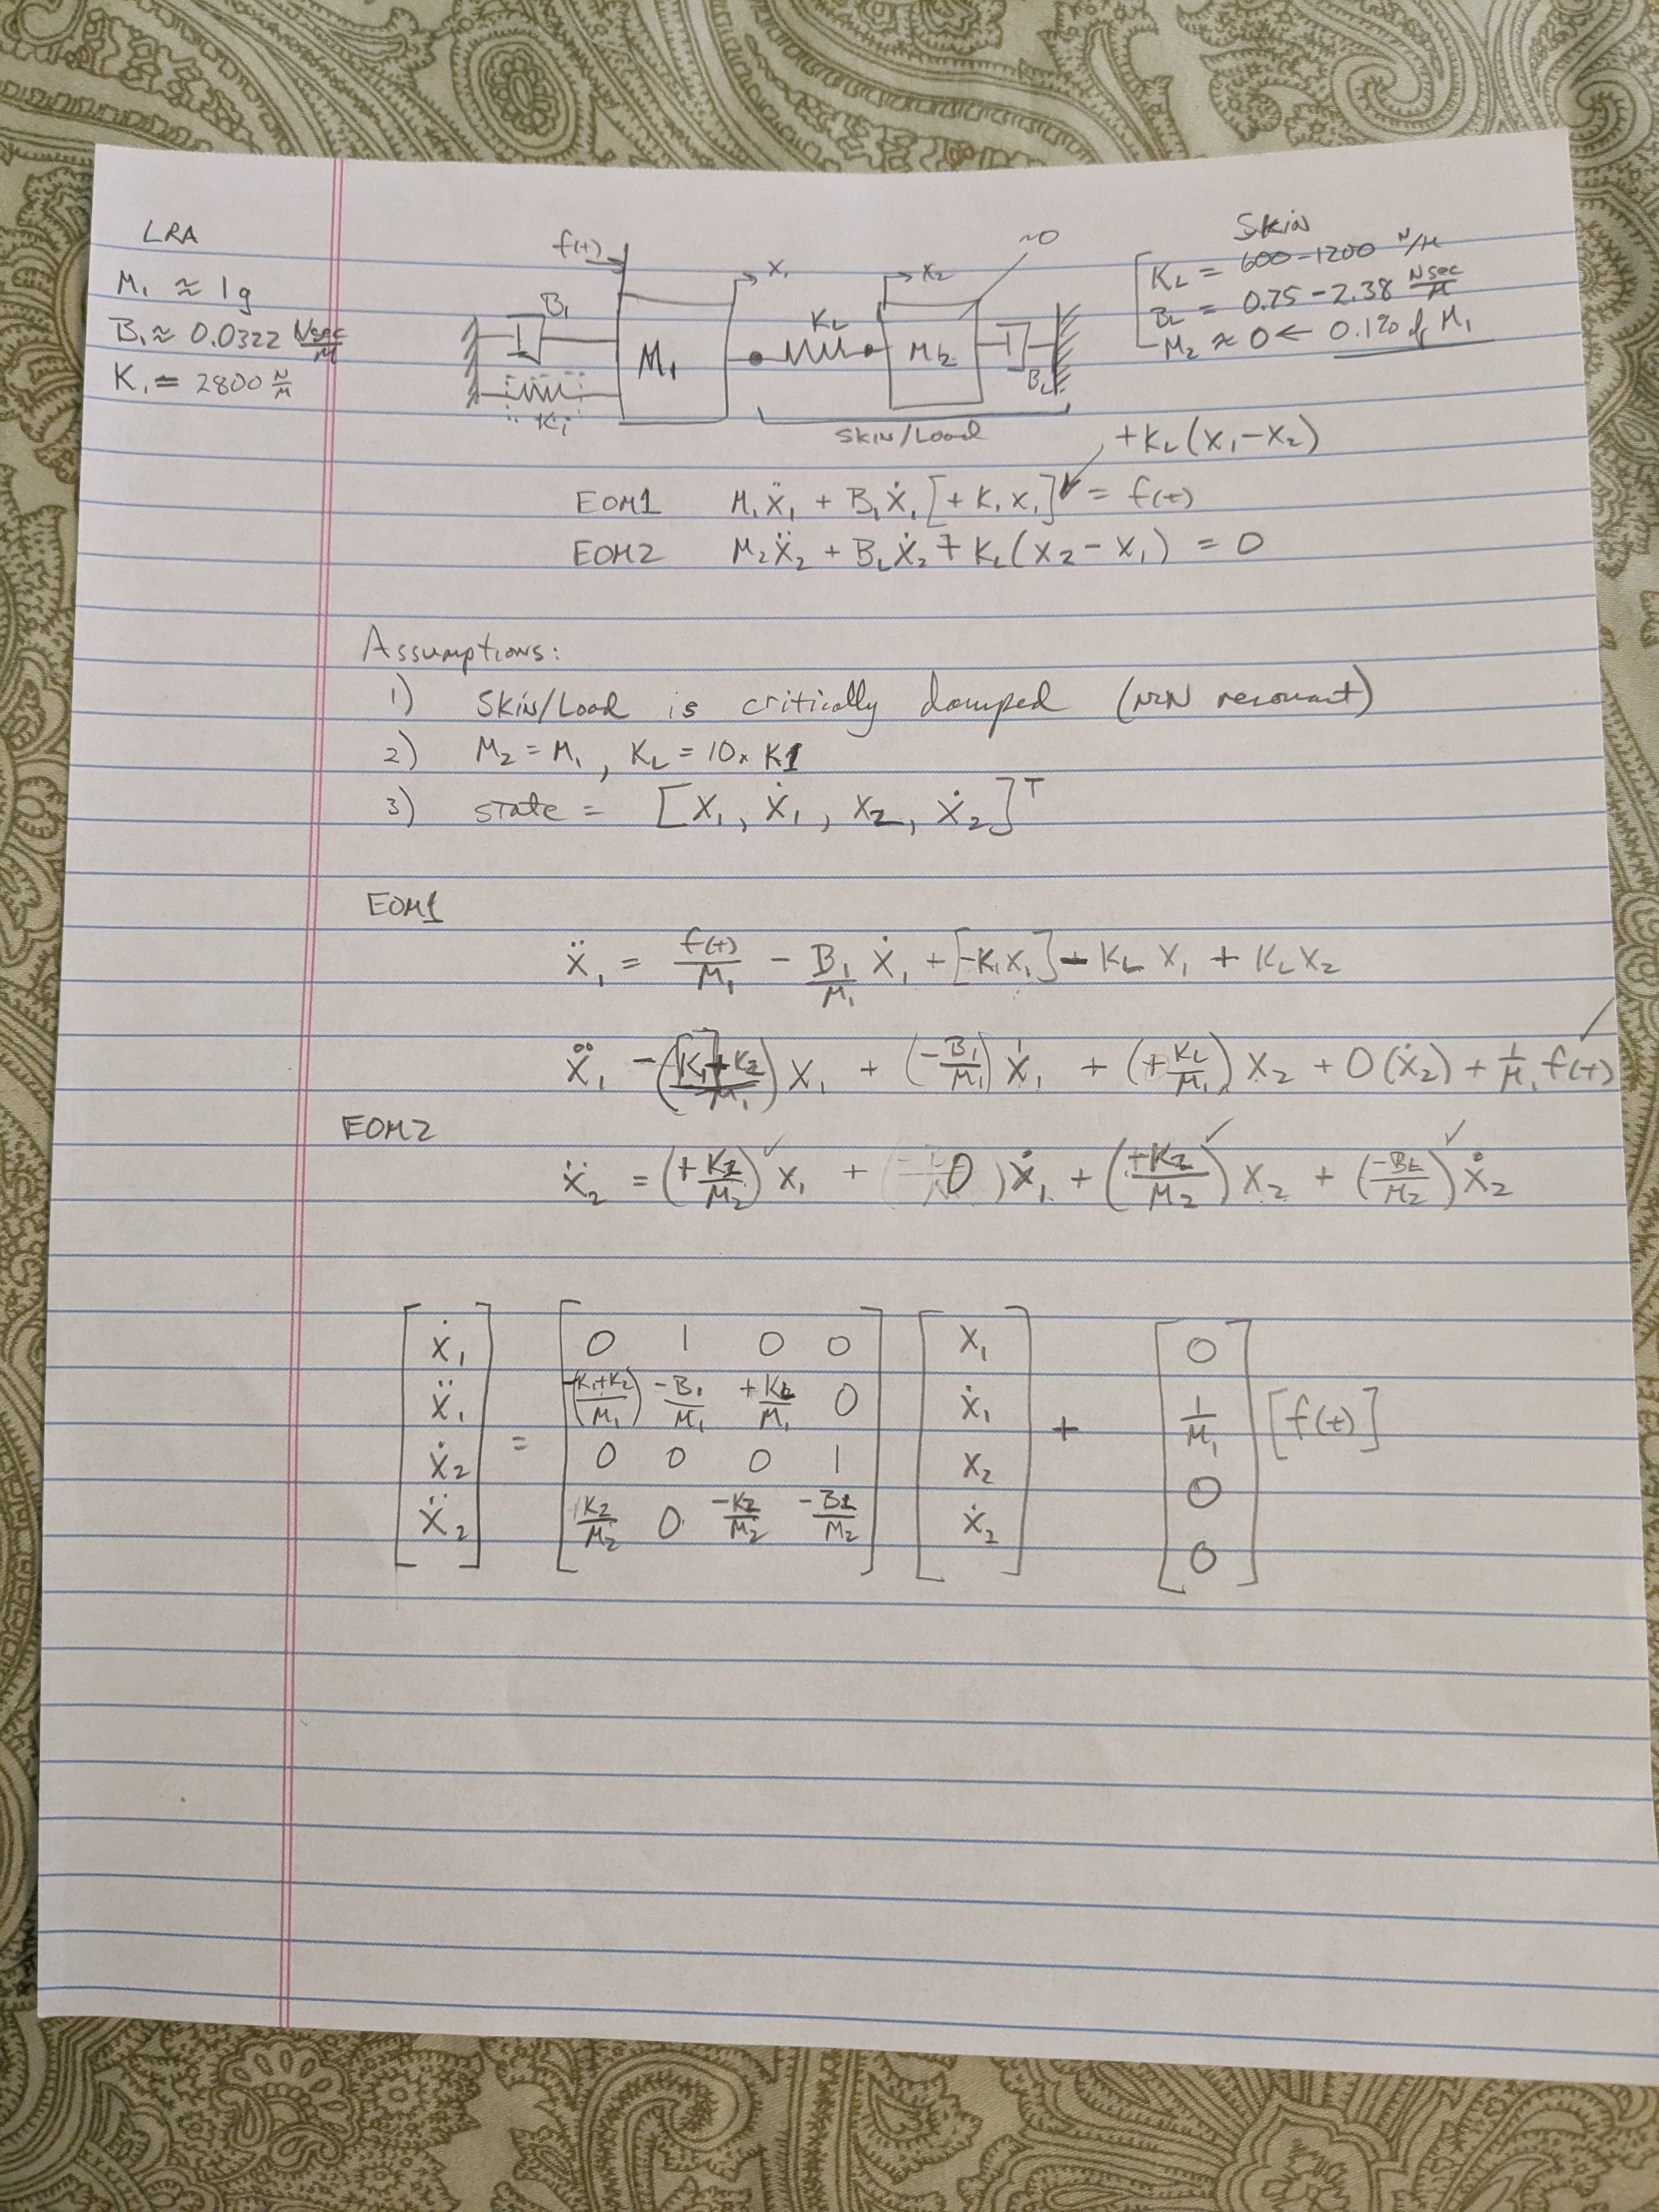 LRA
M₁ ≈ 1g
B₁ ≈ 0.0322 Nsec/M
K₁ = 2800 N/M
f(t)
x₁
x₂
~0
B₁
M₁
K₁
K_L
M_L
B_L
SKIN/LOAD
Skin
K_L = 600-1200 N/M
B_L = 0.75-2.38 Nsec/M
M₂ ≈ 0 ← 0.1% of M₁
+K_L(x₁-x₂)
EOM1 M₁ẍ₁ + B₁ẋ₁ [+ K₁x₁] = f(t)
EOM2 M₂ẍ₂ + B_Lẋ₂ + K_L(x₂-x₁) = 0
Assumptions:
1) Skin/Load is critically damped (non resonant)
2) M₂ = M₁, K_L = 10x K1
3) state = [x₁, ẋ₁, x₂, ẋ₂]ᵀ
EOM1
ẍ₁ = f(t)/M₁ - B₁/M₁ ẋ₁ + [-K₁x₁] - K_L x₁ + K_L x₂
ẍ₁ -([K₁]+K₂/M₁) x₁ + (-B₁/M₁) ẋ₁ + (+K_L/M₁) x₂ + 0(ẋ₂) + 1/M₁ f(t) ✓
EOM2
ẍ₂ = (+K₂/M₂) ✓ x₁ + (0) ẋ₁ + (+K₂/M₂) ✓ x₂ + (-B_L/M₂) ✓ ẋ₂
[ẋ₁] [0 1 0 0] [x₁] [0]
[ẍ₁] [-(K₁+K₂/M₁) -B₁/M₁ +K_L/M₁ 0] [ẋ₁] [1/M₁] [f(t)]
[ẋ₂] = [0 0 0 1] [x₂] + [0]
[ẍ₂] [K₂/M₂ 0 -K₂/M₂ -B₂/M₂] [ẋ₂] [0]